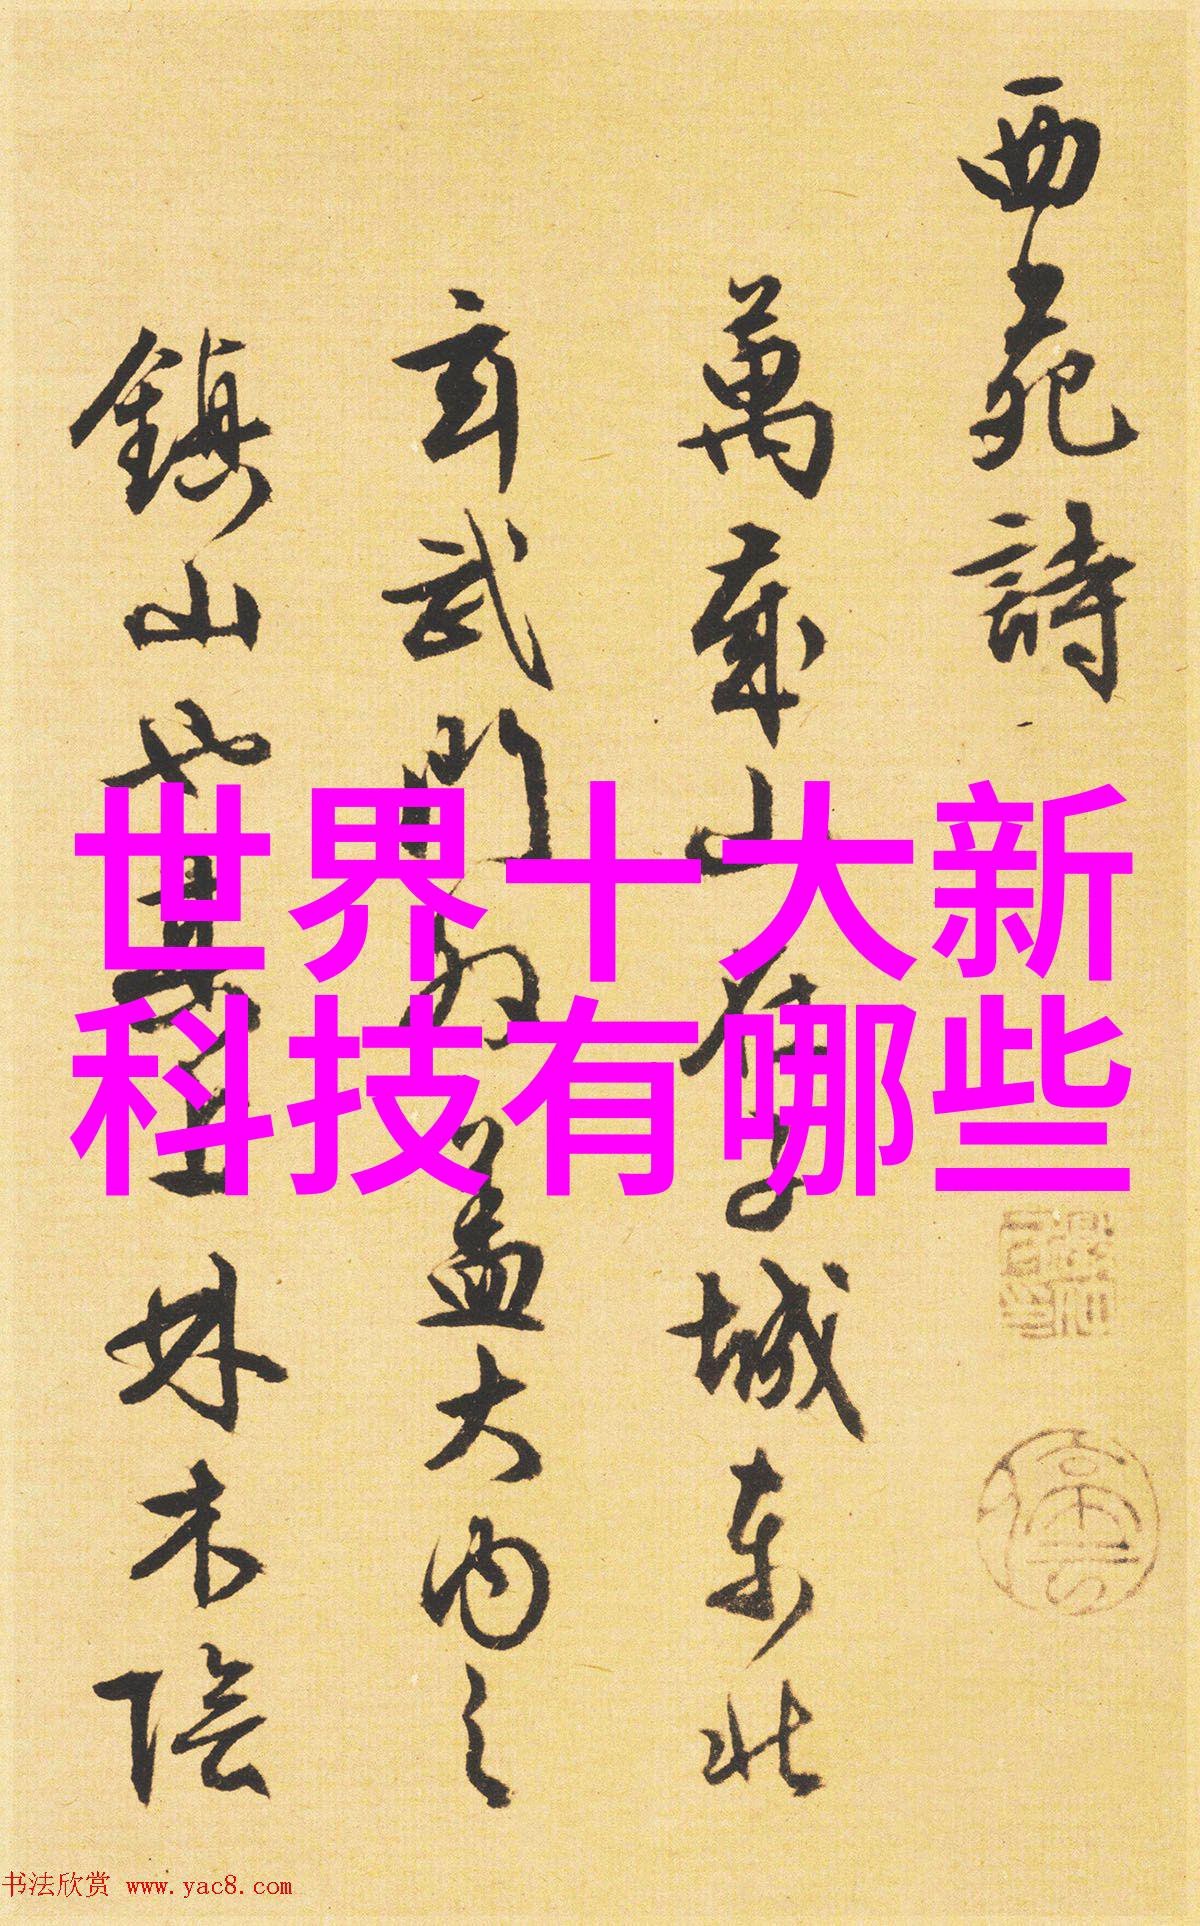 西苑詩
萬歲山在子城東北
玄武門爲蓋大内之
鎮山也其上林木陰
世界十大新
科技有哪些
书法欣赏 www.yac8.com